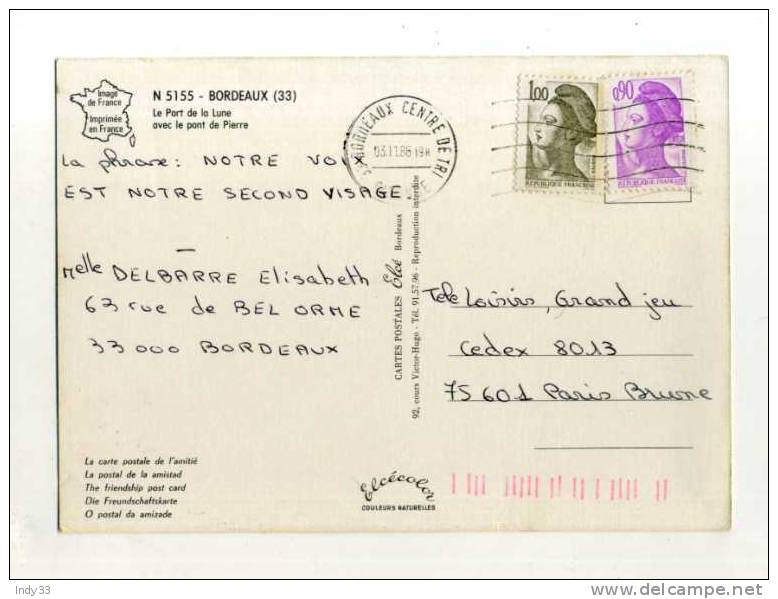 Image
de France
Imprimée
en France
N 5155 - BORDEAUX (33)
Le Port de la Lune
avec le pont de Pierre
BORDEAUX CENTRE DE TRI
1,00
REPUBLIQUE FRANÇAISE
0,90
REPUBLIQUE FRANÇAISE
La phrase: NOTRE VOIX
EST NOTRE SECOND VISAGE.
Melle DELBARRE Elisabeth
63 rue de BEL ORME
33 000 BORDEAUX
CARTES POSTALES Elcé Bordeaux
92, cours Victor-Hugo - Tél. 91.57.96 - Reproduction interdite
Télé Loisirs, Grand jeu
Cedex 8013
75 601 Paris Brune
La carte postale de l'amitié
La postal de la amistad
The friendship post card
Die Freundschaftskarte
O postal da amizade
Elcécolor
COULEURS NATURELLES
Indy33
delcampe.net